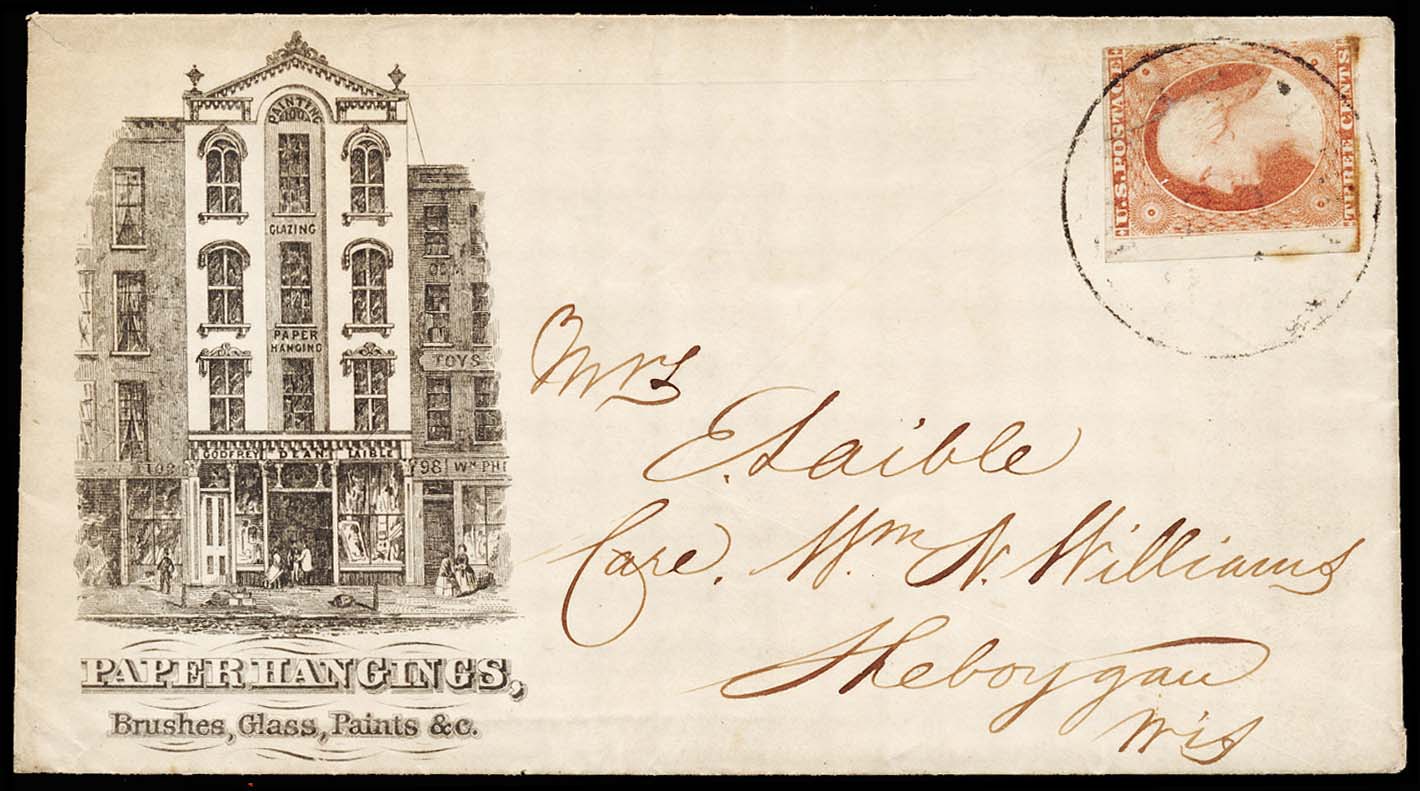 PAINTING
100
GLAZING
PAPER
HANGING
TOYS
GODFREY DEAN & LAIBLE
102
98 WM PHI
PAPER HANGINGS,
Brushes, Glass, Paints &c.
U.S. POSTAGE
THREE CENTS
Mrs
E. Laible
Care. Wm N. Williams
Sheboygan
Wis